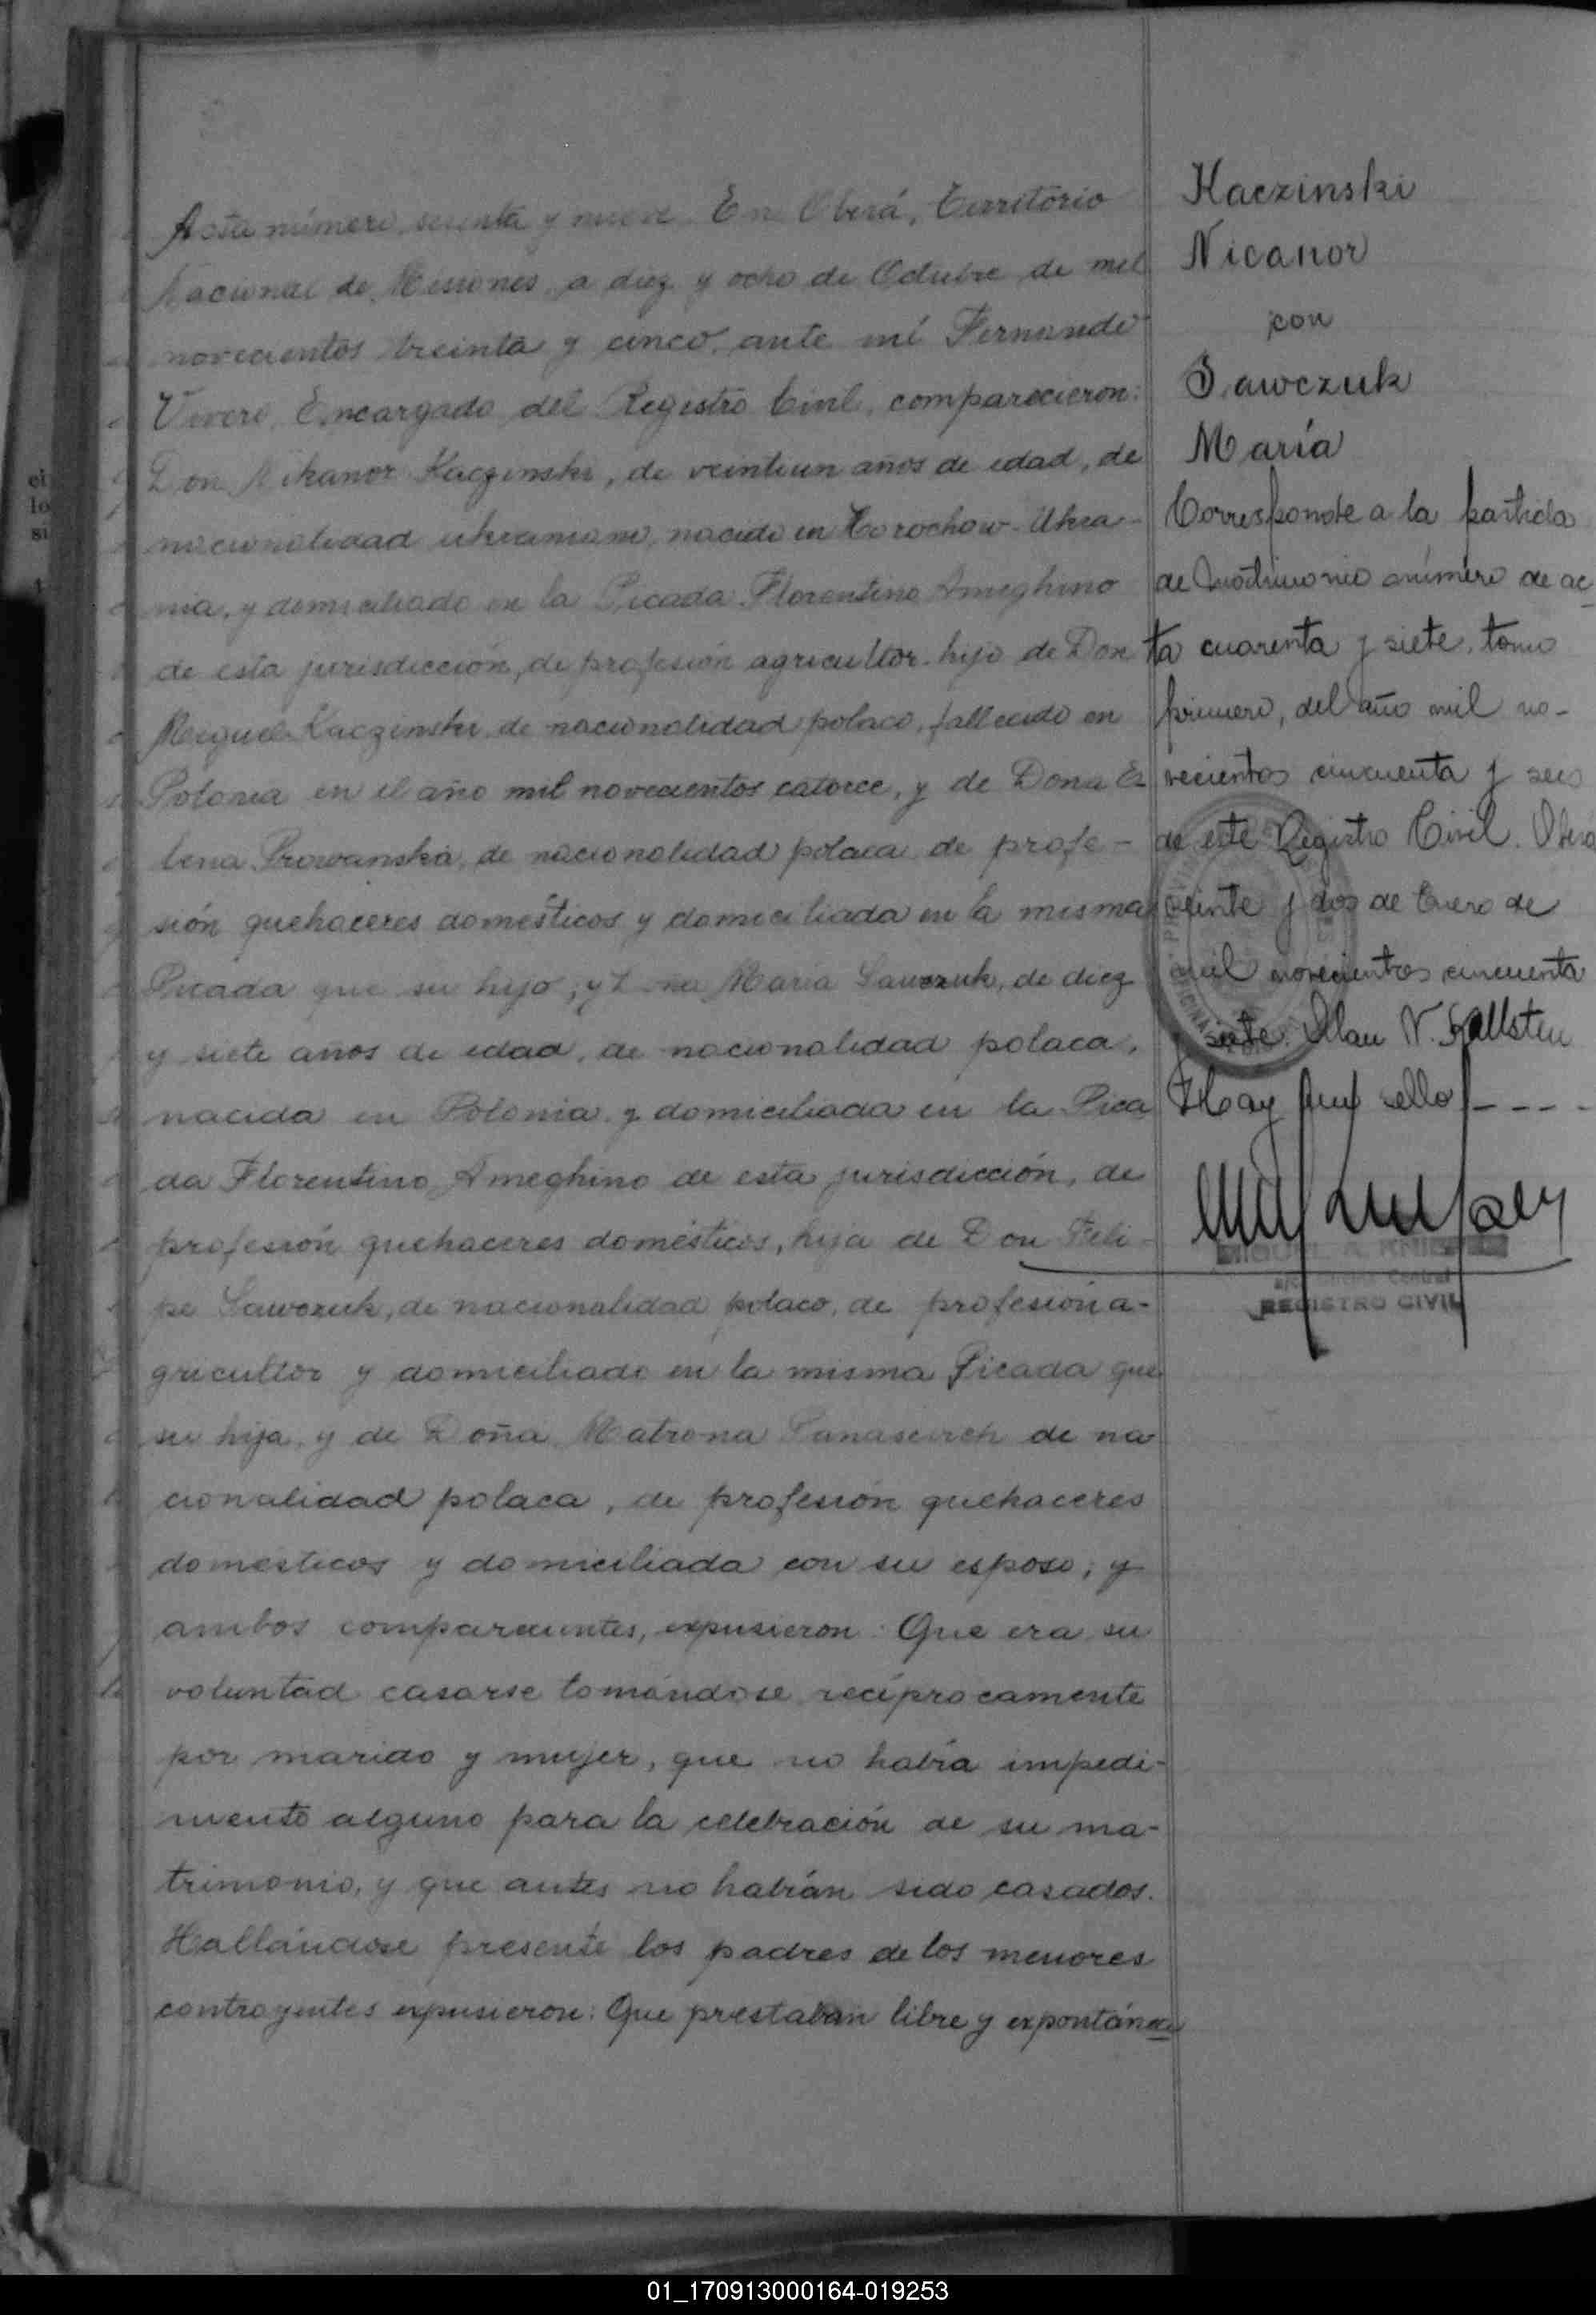 Acta número sesenta y nueve. En Oberá, Territorio
Nacional de Misiones, a diez y ocho de Octubre de mil
novecientos treinta y cinco, ante mí Fernando
Vivero, Encargado del Registro Civil, comparecieron:
Don Nikanor Kaczinski, de veintiun años de edad, de
nacionalidad ukraniano, nacido en Horochow-Ukra-
nia, y domiciliado en la Picada Florentino Ameghino
de esta jurisdicción, de profesión agricultor, hijo de Don
Miguel Kaczinski, de nacionalidad polaco, fallecido en
Polonia en el año mil novecientos catorce, y de Doña E
lena Prowanska, de nacionalidad polaca de profe-
sión quehaceres domésticos y domiciliada en la misma
Picada que su hijo; y Doña María Sawczuk, de diez
y siete años de edad, de nacionalidad polaca,
nacida en Polonia y domiciliada en la Pica
da Florentino Ameghino de esta jurisdicción, de
profesión quehaceres domésticos, hija de Don Feli-
pe Sawczuk, de nacionalidad polaco, de profesión a-
gricultor y domiciliado en la misma Picada que
su hija, y de Doña Matrona Panasevich de na
cionalidad polaca, de profesión quehaceres
domésticos y domiciliada con su esposo; y
ambos comparecientes, expusieron: Que era su
voluntad casarse tomándose recíprocamente
por marido y mujer, que no había impedi-
mento alguno para la celebración de su ma-
trimonio, y que antes no habían sido casados.
Hallándose presente los padres de los menores
contrayentes expusieron: Que prestaban libre y expontánea
Kaczinski
Nicanor
con
Sawczuk
María
Corresponde a la partida
de matrimonio número de ac-
ta cuarenta y siete, tomo
primero, del año mil no-
vecientos cincuenta y seis
de este Registro Civil. Oberá
veinte y dos de Enero de
mil novecientos cincuenta
y siete. Allan N. Kallsten
Hay un sello
MIGUEL A.
Oficina Central
REGISTRO CIVIL
01_170913000164-019253